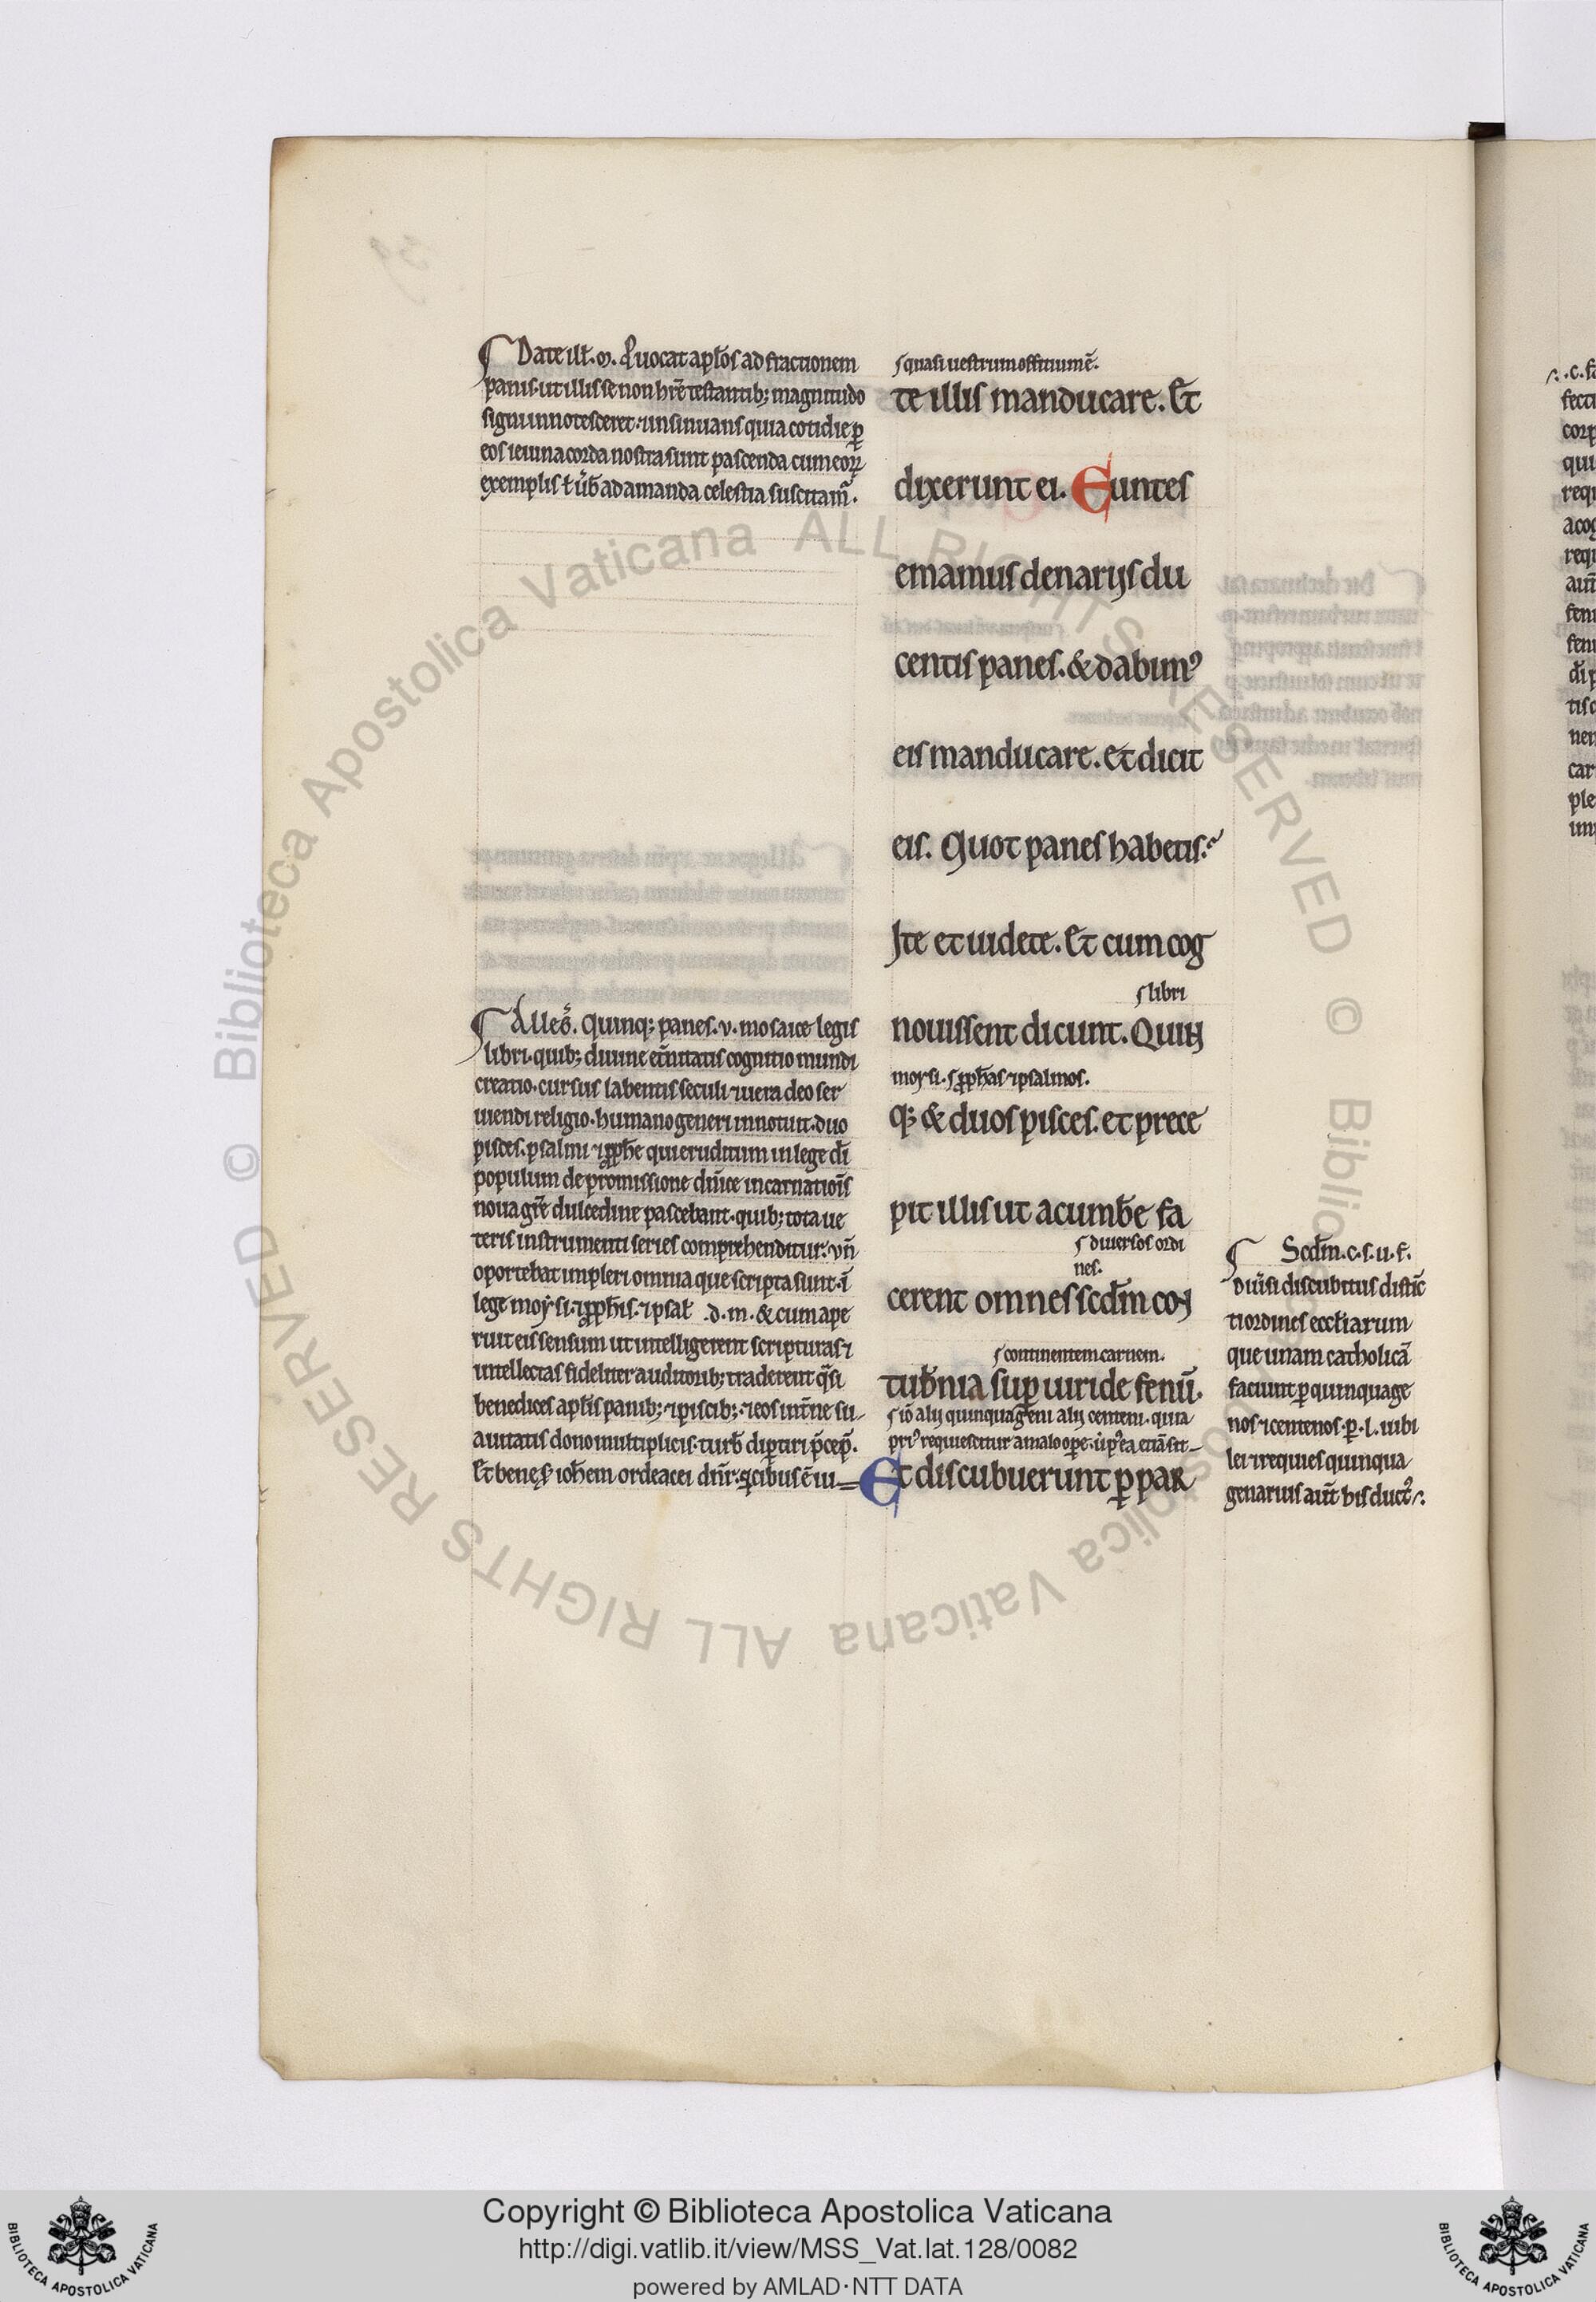 Date ill̃. m̃. Puocat apl̃os ad fractionem
panis. ut illis se non hr̃e testantib; magnitudo
signi innotesceret. ⁊ insinuans quia cotidie p̲
eos ieiuna corda nostra sunt pascenda cum eoꝝ
exemplis ł ũb̃ ad amanda celestia suscitam̃.
Alleḡ. Quinq; panes. v. mosaice legis
libri. quib; diuine et̃nitatis cognitio mundi
creatio. cursus labentis seculi ⁊ uera deo ser
uiendi religio. humano generi innotuit. duo
pisces. psalmi ⁊ ꝓph̃e qui eruditum in lege dı̃
populum de promissione dñice incarnatiõis
noua gr̃e dulcedine pascebant. quib; tota ue
teris instrumenti series comprehenditur. vñ
oportebat impleri omnia que scripta sunt. ı̃
lege moysi. ⁊ ꝓph̃is. ⁊ psal̃ .d. m. & cum ape
ruit eis sensum ut intelligerent scripturas ⁊
intellectas fideliter auditorib; traderent q̃si
benedices apl̃is panib; ⁊ piscib; ⁊ eos int̃ne su
auitatis dono multiplicis. turb̃ dip̲tiri p̃cep̃.
Et bene ioh̃em ordeacei dñr. q̲ cibus ẽ iu
quasi uestrum offitium ẽ.
te illis manducare. Et
dixerunt ei. Euntes
emamus denarijs du
centis panes. & dabimꝰ
eis manducare. et dicit
eis. Quot panes habetis?
Ite et uidete. Et cum cog
libri
nouissent dicunt. Quin
moysi. ꝓph̃as ⁊ psalmos.
q; & duos pisces. et prece
pit illis ut acumb̃e fa
diuersos ordi
nes.
cerent omnes scd̃m con
continentem carnem.
tub̃nia sup̲ uiride fenũ.
iõ alij quinquag̃eni alij centeni. quia
priꝰ requiescitur a malo op̲e. ũ p̃ ea etiã sit
Et discubuerunt p̲ par
Scd̃m. c. s. u. f.
Diũsi discubitus distı̃c
ti ordines eccl̃iarum
que unam catholicã
faciunt p̲ quinquage
nos ⁊ centenos. p̲ .l. iubi
lei ⁊ requies quinqua
genarius aũt bis ductꝰ
Copyright © Biblioteca Apostolica Vaticana
http://digi.vatlib.it/view/MSS_Vat.lat.128/0082
powered by AMLAD·NTT DATA
BIBLIOTECA APOSTOLICA VATICANA
BIBLIOTECA APOSTOLICA VATICANA
© Biblioteca Apostolica Vaticana ALL RIGHTS RESERVED
© Biblioteca Apostolica Vaticana ALL RIGHTS RESERVED